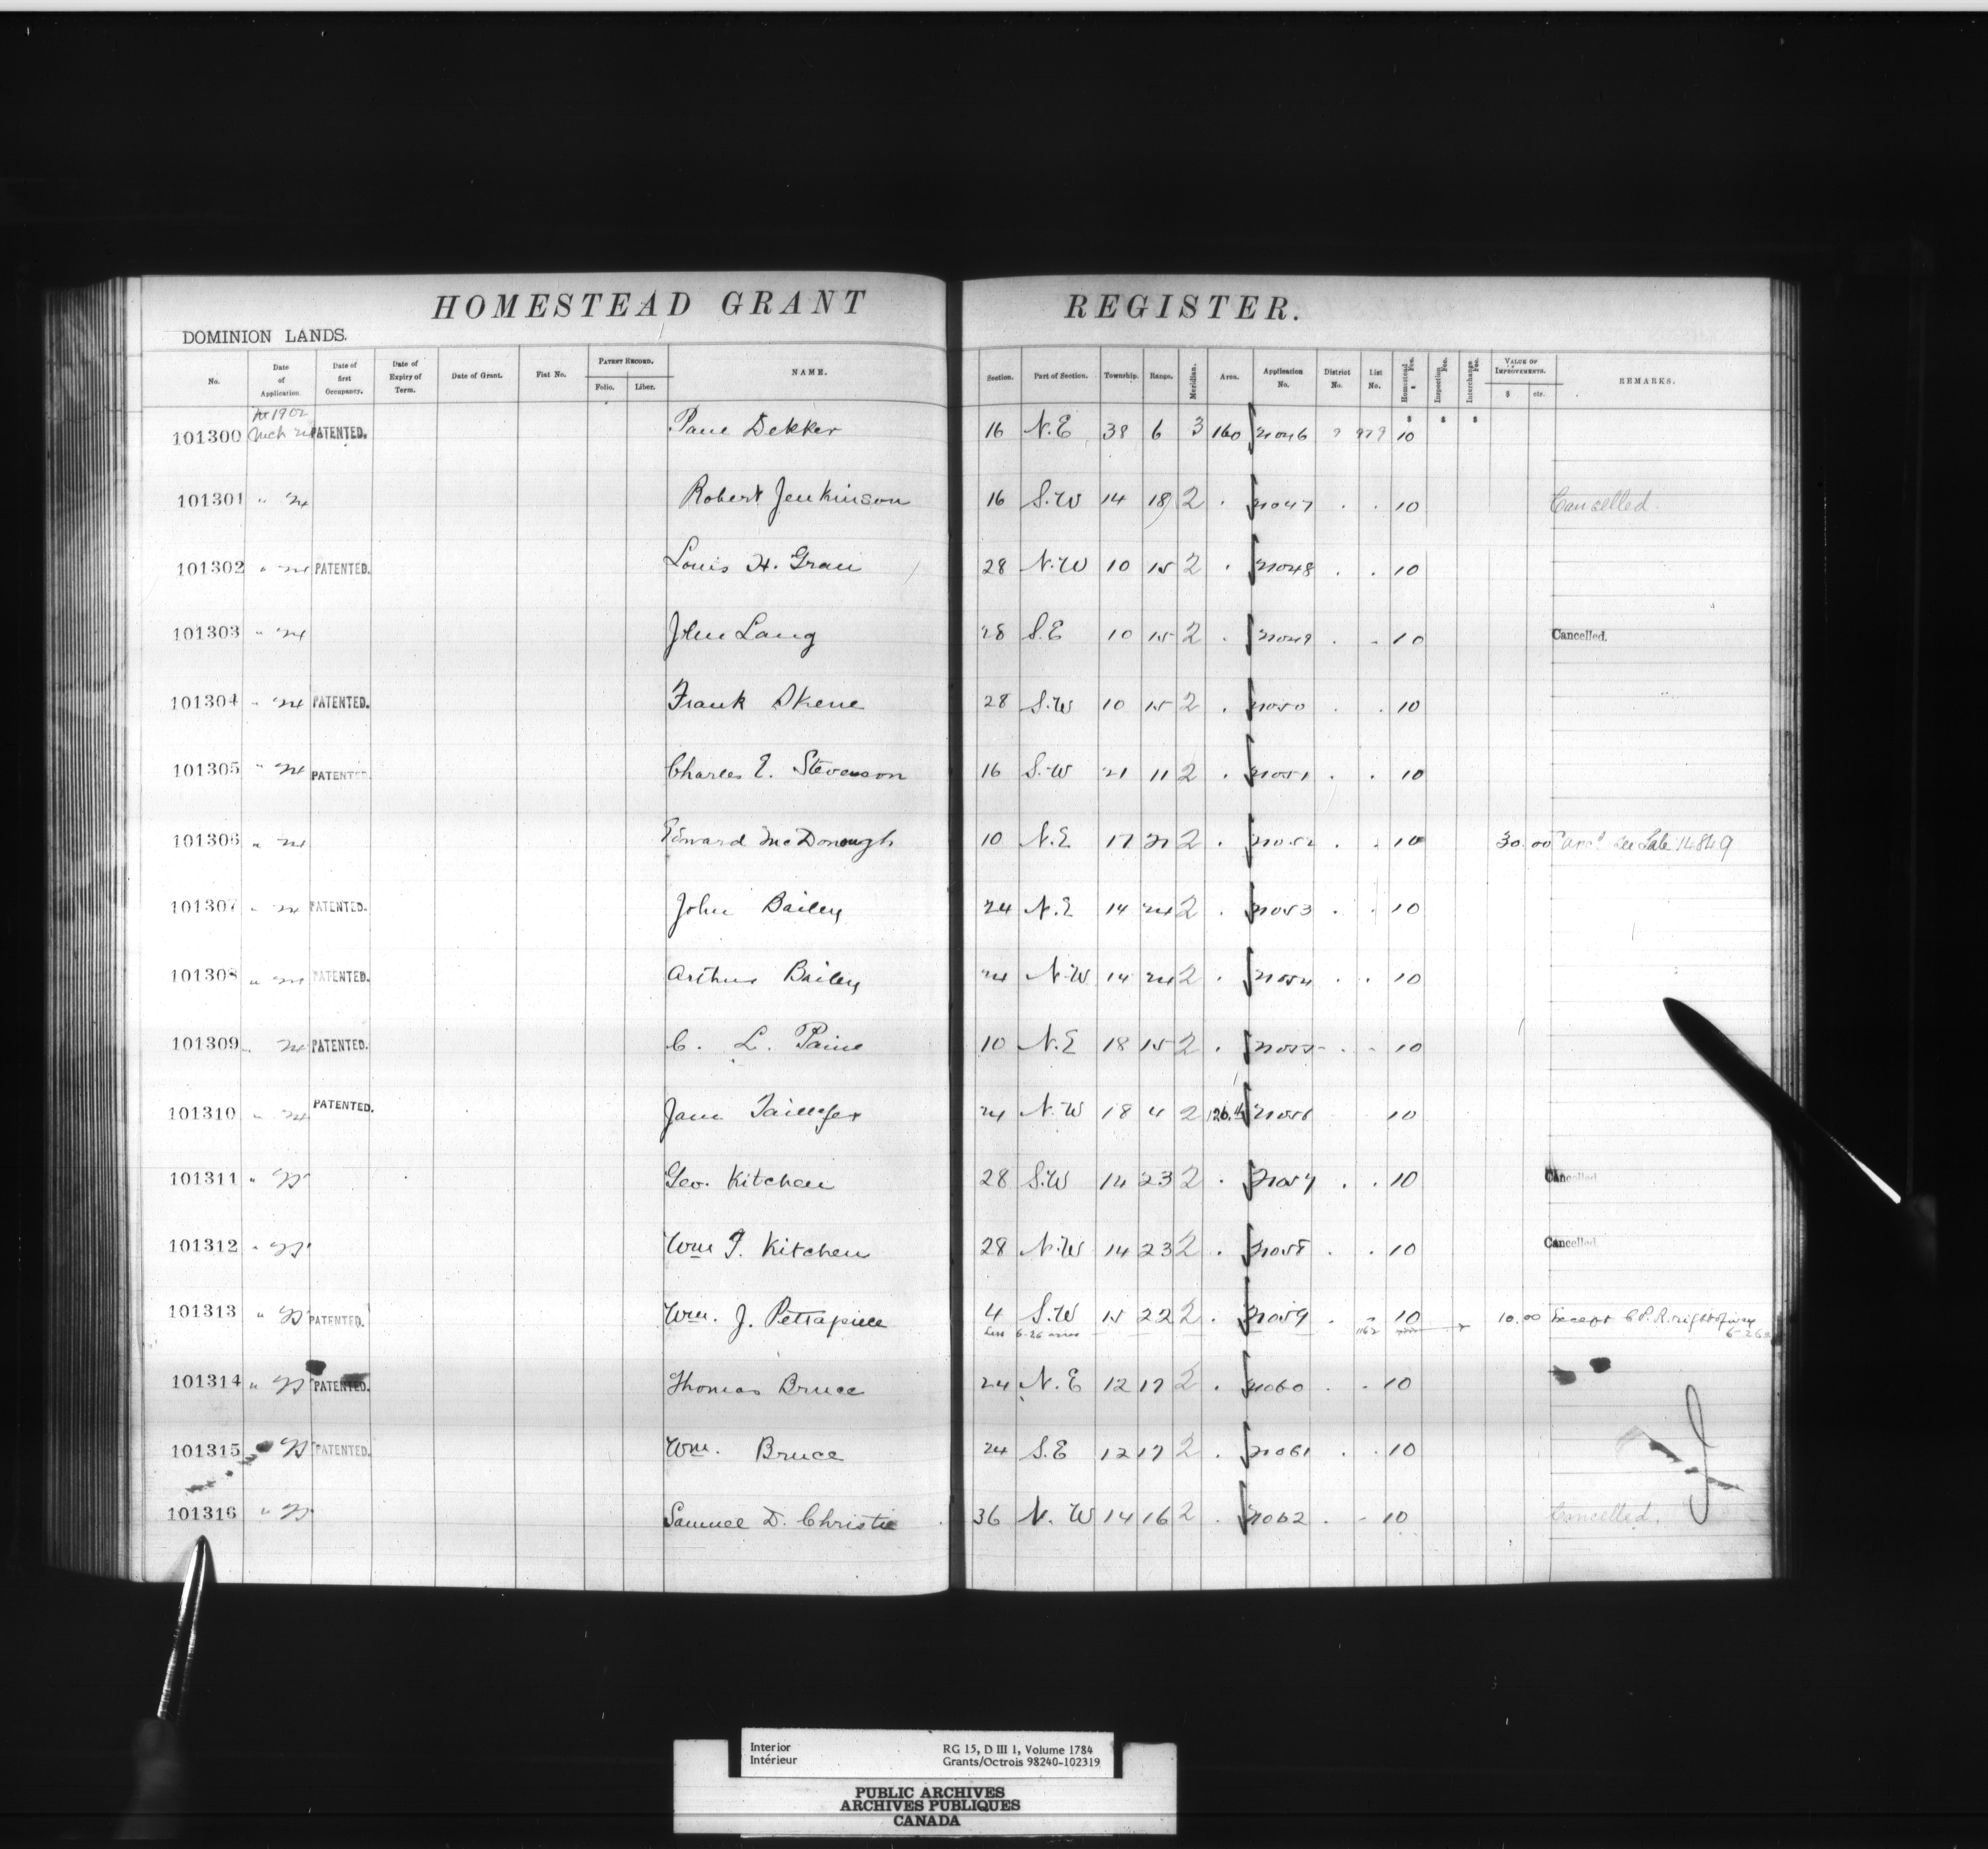 HOMESTEAD GRANT REGISTER.
DOMINION LANDS.
No. Date of Application Date of first Occupancy. Date of Expiry of Term. Date of Grant. Fiat No. PATENT RECORD. Folio. Liber. NAME. Section. Part of Section. Township. Range. Meridian. Area. Application No. District No. List No. Homestead Fee. Inspection Fee. Interchange Fee. VALUE OF IMPROVEMENTS. $ cts. REMARKS.
1902
101300 Mch 24 PATENTED. Dekker 16 N.E 38 6 3 160 21046 10
101301 " 24 Robert Jenkinson 16 S.W 14 18 2 . 21047 . . 10 Cancelled.
101302 " 24 PATENTED. Louis H. Grau 28 N.W 10 15 2 . 21048 . . 10
101303 " 24 John Lang 28 S.E 10 15 2 . 21049 . . 10 Cancelled.
101304 " 24 PATENTED. Frank Skene 28 S.W 10 15 2 . 21050 . . 10
101305 " 24 PATENTED. Charles E. Stevenson 16 S.W 21 11 2 . 21051 . . 10
101306 " 24 Edward McDonough 10 N.E 17 21 2 . 21052 . . 10 30.00 14849
101307 " 24 PATENTED. John Bailey 24 N.E 14 24 2 . 21053 . . 10
101308 " 24 PATENTED. Arthur Bailey 24 N.W 14 24 2 . 21054 . . 10
101309 " 24 PATENTED. C. L. Paine 10 N.E 18 15 2 . 21055 . . 10
101310 " 24 PATENTED. 24 N.W 18 4 2 21056 10
101311 " 25 Geo. Kitchen 28 S.W 14 23 2 . 21057 . . 10 Cancelled
101312 " 25 Wm F. Kitchen 28 N.W 14 23 2 . 21058 . . 10 Cancelled
101313 " 25 PATENTED. Wm. J. Pettapiece 4 S.W 15 22 2 . 21059 . 10 10.00 Except C.P.R. right of way
Less 6.26 acres 1162 6.26
101314 " 25 PATENTED. Thomas Bruce 24 N.E 12 17 2 . 21060 . . 10
101315 25 PATENTED. Wm. Bruce 24 S.E 12 17 2 . 21061 . . 10
101316 " 25 Samuel D. Christie 36 N.W 14 16 2 . 21062 . . 10 Cancelled.
Interior RG 15, D III 1, Volume 1784
Intérieur Grants/Octrois 98240-102319
PUBLIC ARCHIVES
ARCHIVES PUBLIQUES
CANADA